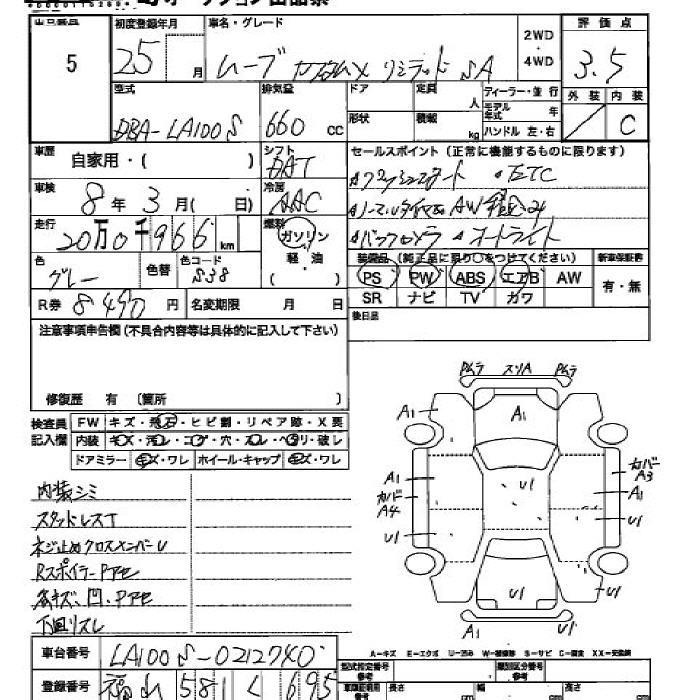 出品票
出品番号 初度登録年月 車名・グレード 2WD・4WD 評価点
5 25 月 ムーブ カスタムX リミテッド SA 3.5
外装 内装
C
型式 排気量 ドア 定員 人 ディーラー・並行
DBA-LA100S 660 cc 形状 積載 kg モデル年式 年
ハンドル 左・右
車歴 自家用・( ) シフト DAT
セールスポイント(正常に機能するものに限ります)
車検 8年 3月( 日) 冷房 AAC
・プッシュスタート ・ETC
・ノーマルタイヤ AW
・バックカメラ ・オートライト
走行 20万0千966km 燃料 ガソリン・軽・油( )
色 グレー 色替 色コード S38
装備品(純正品に限り○をつけてください) 新車保証書
PS PW ABS エアB AW 有・無
SR ナビ TV カワ
R券 8490円 名変期限 月 日 後日品
注意事項申告欄(不具合内容等は具体的に記入して下さい)
修復歴 有 〔箇所 〕
検査員記入欄 FW キズ・飛石・ヒビ割・リペア跡・X要
内装 キズ・汚レ・コゲ・穴・スレ・ヘタリ・破レ
ドアミラー キズ・ワレ ホイール・キャップ キズ・ワレ
内装シミ
スタッドレスT
ネジ止めクロスメンバーU
RスポイラーPアセ
各キズ、凹、Pアセ
下回りスレ
Pムラ スリA Pムラ
A1 A1
A1 カバーA3
カバーA4 U1 A1
U1 U1
U1 U1
A1 U1
A-キズ E-エクボ U-凹み W-補修跡 S-サビ C-腐食 XX-交換跡
車台番号 LA100S-0212740
登録番号 福山 581 く 695
型式指定番号 類別区分番号
長さ cm 幅 cm 高さ cm